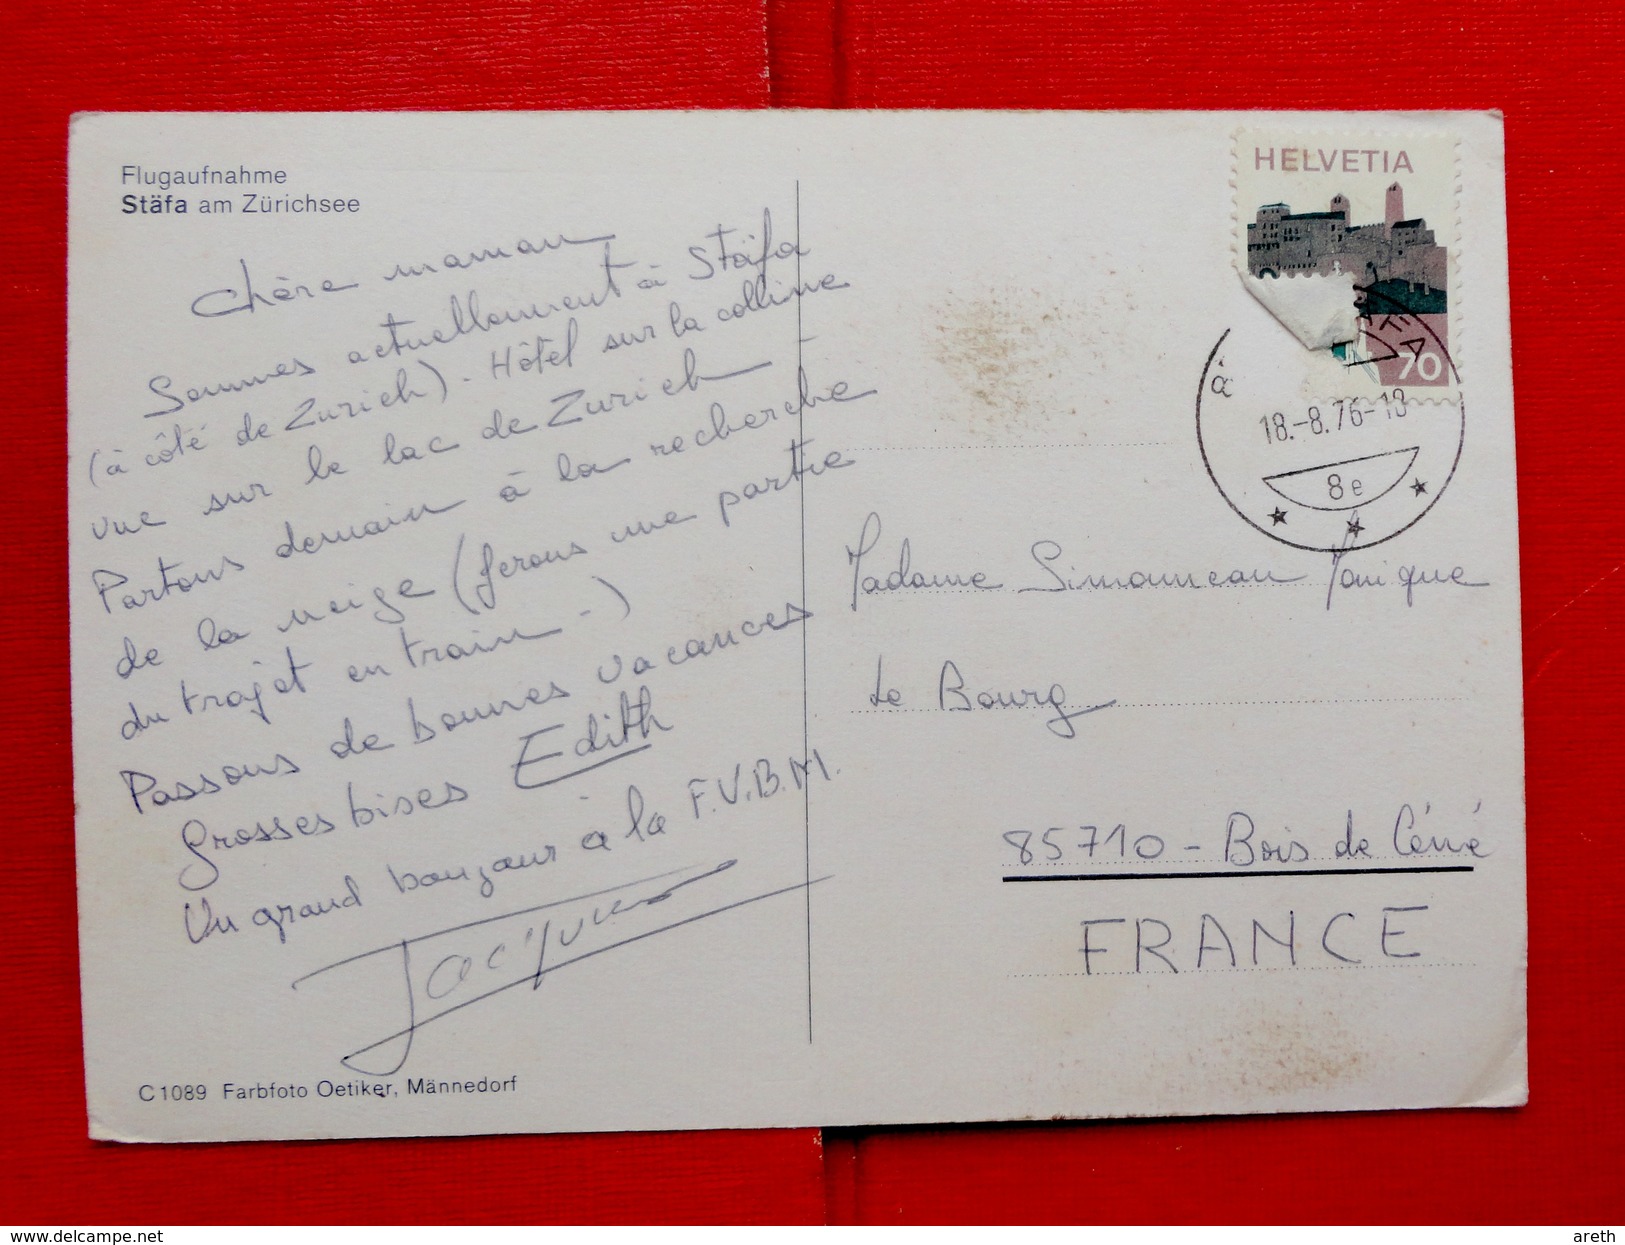 Flugaufnahme
Stäfa am Zürichsee
Chère maman
Sommes actuellement à Stäfa
(à côté de Zurich). Hôtel sur la colline
vue sur le lac de Zurich -
Partons demain à la recherche
de la neige (ferons une partie
du trajet en train -)
Passons de bonnes vacances
Grosses bises Edith
Un grand bonjour à la F.V.B.M.
Jacques
C 1089 Farbfoto Oetiker, Männedorf
HELVETIA
70
18.-8.76-18
8e
Madame Simonneau Monique
Le Bourg
85710 - Bois de Céné
FRANCE
www.delcampe.net
areth